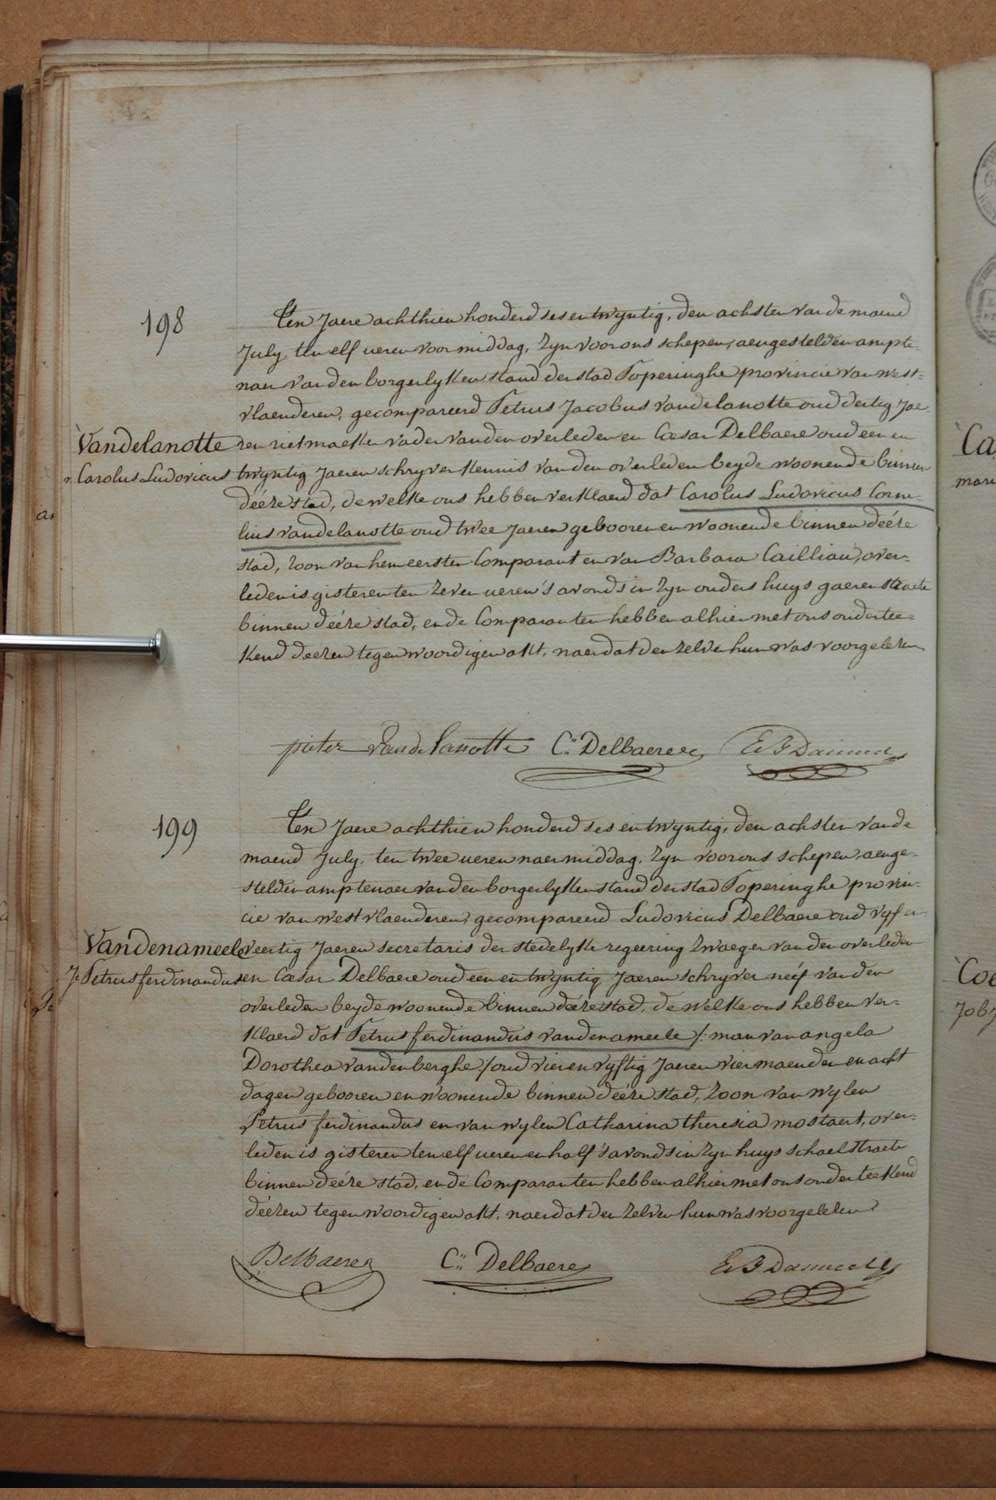 198
Ten Jaere achthien honderd ses en twyntig, den achsten van de maend
July, ten elf ueren voormiddag, zyn voor ons schepen, aengestelden ampte-
naer van den borgerlyken stand der stad Poperinghe provincie van west-
vlaenderen, gecompareerd Petrus Jacobus vandelanotte oud dertig jae-
Vandelanotte
Carolus Ludovicus
ren rietmaeker vader van den overleden en Cæsar Delbaere oud een en
twyntig Jaeren schryver kennis van den overleden beyde woonende binnen
dééze stad, de welke ons hebben verklaerd dat Carolus Ludovicus Corne-
lius vandelanotte oud twee jaeren gebooren en woonende binnen déeze
stad, zoon van hem eersten Comparant en van Barbara Cailliau, over-
leden is gisteren ten zeven ueren 's avonds in zyn ouders huys gaeren straete
binnen déeze stad, en de Comparanten hebben alhier met ons ondertee-
kend deezen tegenwoordigen akt, naer dat den zelven hun was voorgelezen
pieter Vande lanotte C: Delbaere
199
Ten Jaere achthien honderd ses en twyntig, den achsten van de
maend July, ten twee ueren naermiddag, zyn voor ons schepen, aenge-
stelden amptenaer van den borgerlyken stand der stad Poperinghe provin-
cie van westvlaenderen, gecompareerd Ludovicus Delbaere oud vyf en
Vandenameele
Petrus ferdinandus
veertig Jaeren secretaris der stedelyke regeering zwaeger van den overleden
en Cæsar Delbaere oud een en twyntig Jaeren schryver neéf van den
overleden beyde woonende binnen déeze stad, de welke ons hebben ver-
klaerd dat Petrus ferdinandus vandenameele /: man van angela
Dorothea vandenberghe / oud vier en vyftig Jaeren vier maenden en acht
dagen gebooren en woonende binnen déeze stad, zoon van wylen
Petrus ferdinandus en van wylen Catharina theresia mostaert, over-
leden is gisteren ten elf ueren en half 's avonds in zyn huys schaelstraete
binnen déeze stad, en de Comparanten hebben alhier met ons onderteekend
déezen tegenwoordigen akt, naer dat den zelven hun was voorgelezen
Delbaere C: Delbaere